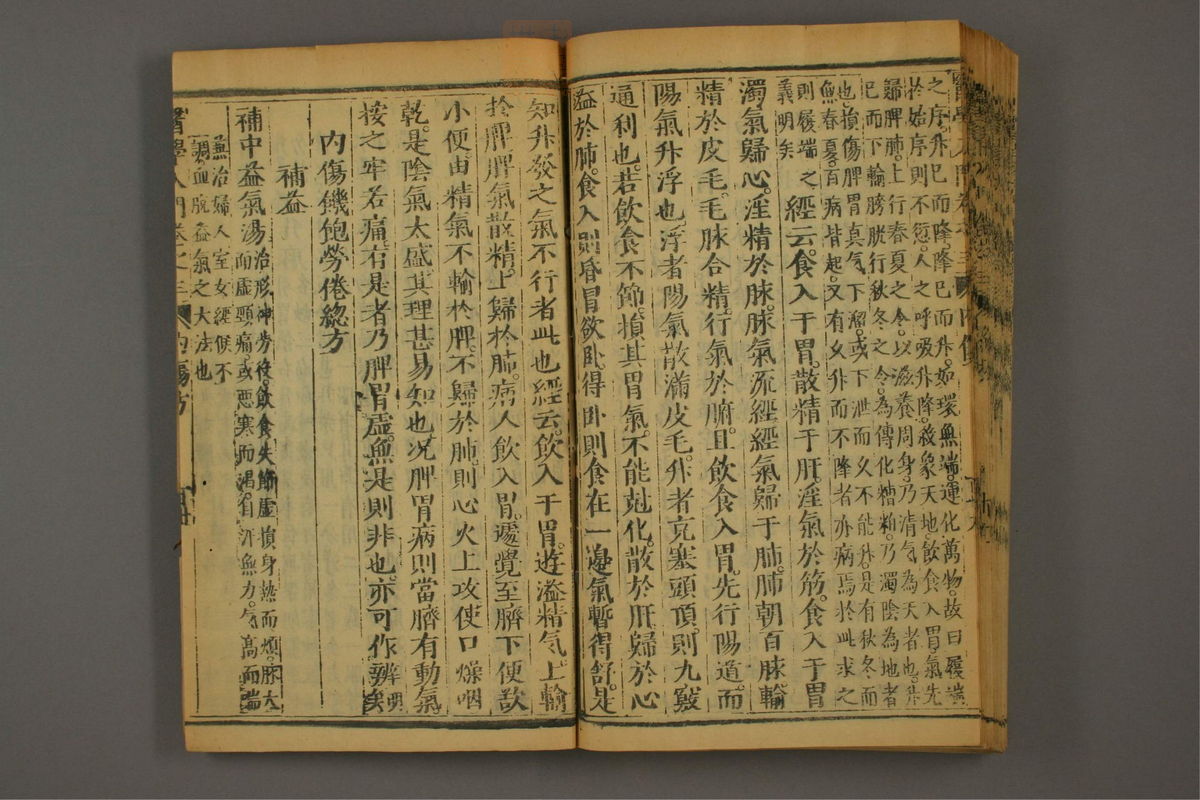 之序升已而降降已而升如環無端運化萬物故曰履端
於始序則不愆人之呼吸升降效象天地飲食入胃氣先
歸脾肺上行春夏之令以滋養周身乃清气為天者也升
已而下輸膀胱行秋冬之令為傳化糟粕乃濁陰為地者
也損傷脾胃真气下溜或下泄而久不能升是有秋冬而
無春夏百病皆起又有久升而不降者亦病焉於此求之
則履端之
義明矣
經云食入于胃散精于肝淫氣於筋食入于胃
濁氣歸心淫精於脉脉氣流經經氣歸于肺肺朝百脉輸
精於皮毛毛脉合精行氣於腑且飲食入胃先行陽道而
陽氣升浮也浮者陽氣散滿皮毛升者充塞頭頂則九竅
通利也若飲食不節損其胃氣不能尅化散於肝歸於心
溢於肺食入則昏冒欲卧得卧則食在一邊氣暫得舒是
知升發之氣不行者此也經云飲入于胃遊溢精氣上輸
於脾脾氣散精上歸於肺病人飲入胃遽覺至臍下便欲
小便由精氣不輸於脾不歸於肺則心火上攻使口燥咽
乾是陰氣太盛其理甚易知也况脾胃病則當臍有動氣
按之牢若痛有是者乃脾胃虛無是則非也亦可作辨明
矣
內傷饑飽勞倦總方
補益
補中益氣湯
治形神勞役飲食失節虛損身熱而煩脉大
而虛頭痛或惡寒而渴自汗無力气高而喘
兼治婦人室女經候不
調血脫益氣之大法也
醫學入門卷之三
內傷方